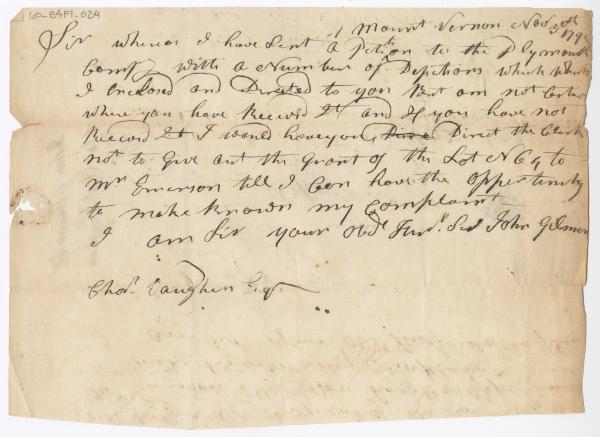 62-84F1-024
Mount Vernon Nov 30th 179
Sir wheras I have Sent a Petitn to the Plymouth
Compy with a Number of Depotions which
I Enclosed and Directed to you But am not Certen
whare you have Receivd It and If you have not
Receivd It I would have you Dire Direct the Clark
not to Give out the Grant of the Lot N 69 to
Mr Emerson till I Can have the oppertunity
to make known my Complaint
I am Sir your Obdt Humbl Sert John Gilmor
Chas. Vaughen Esqr.